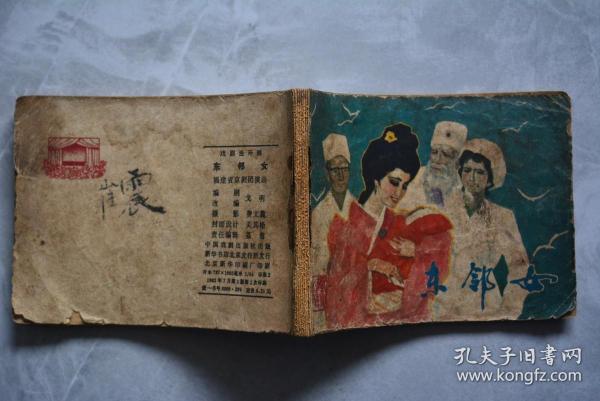 崔震
戏剧连环画
东邻女
福建省京剧团演出
编剧
改编 戈明
摄影 费文麓
封面设计 吴其柏
责任编辑
中国戏剧出版社出版
新华书店北京发行所发行
北京新华印刷厂印刷
东邻女
孔夫子旧书网
www.kongfz.com